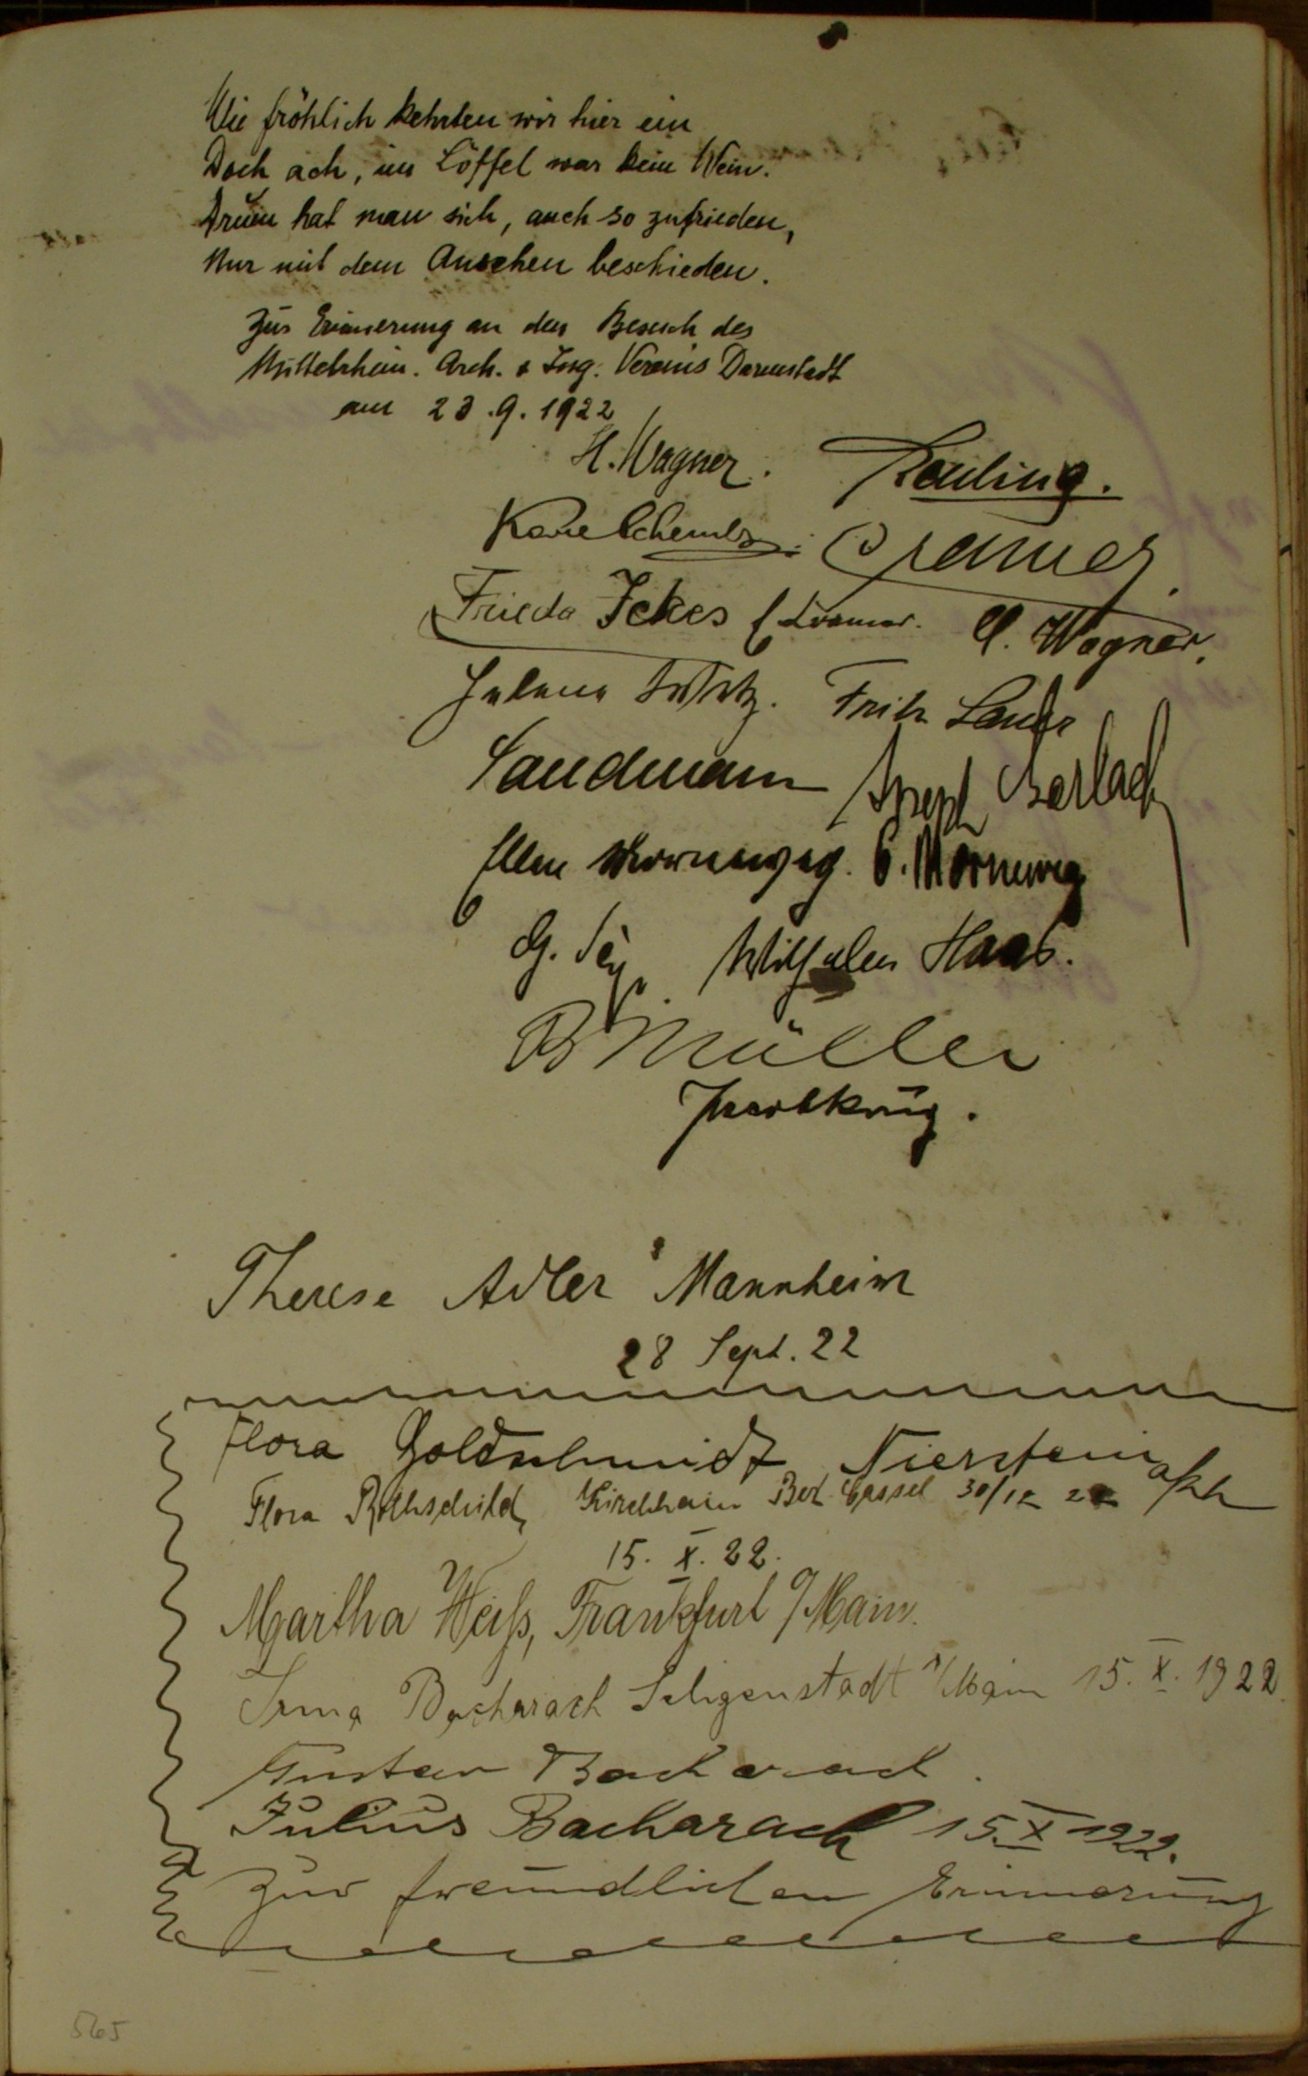 Wie fröhlich kehrten wir hier ein
Doch ach, im Löffel war kein Wein.
Drum hat man sich, auch so zufrieden,
Nur mit dem Ansehen beschieden.
Zur Erinnerung an den Besuch des
Mittelrhein. Arch. & Ing. Vereins Darmstadt
am 23.9.1922
H. Wagner.
Cramer.
Frieda Jckes
Wagner.
Helene Fritz
Sandmann Joseph Gerlach
Ellen Morneweg. Morneweg
Wilhelm Haas.
B Müller
Jacob Krug.
Therese Adler Mannheim
28 Sept. 22
Flora Goldschmidt Nierstein a/Rh
Flora Rothschild, Kirchhain Bez. Cassel 30/12 22
15. X. 22.
Martha Weiß, Frankfurt a/Main.
Irma Bacharach Seligenstadt a/Main 15. X. 1922.
Gustav Bacharach.
Julius Bacharach 15. X 1922.
Zur freundlichen Erinnerung
565